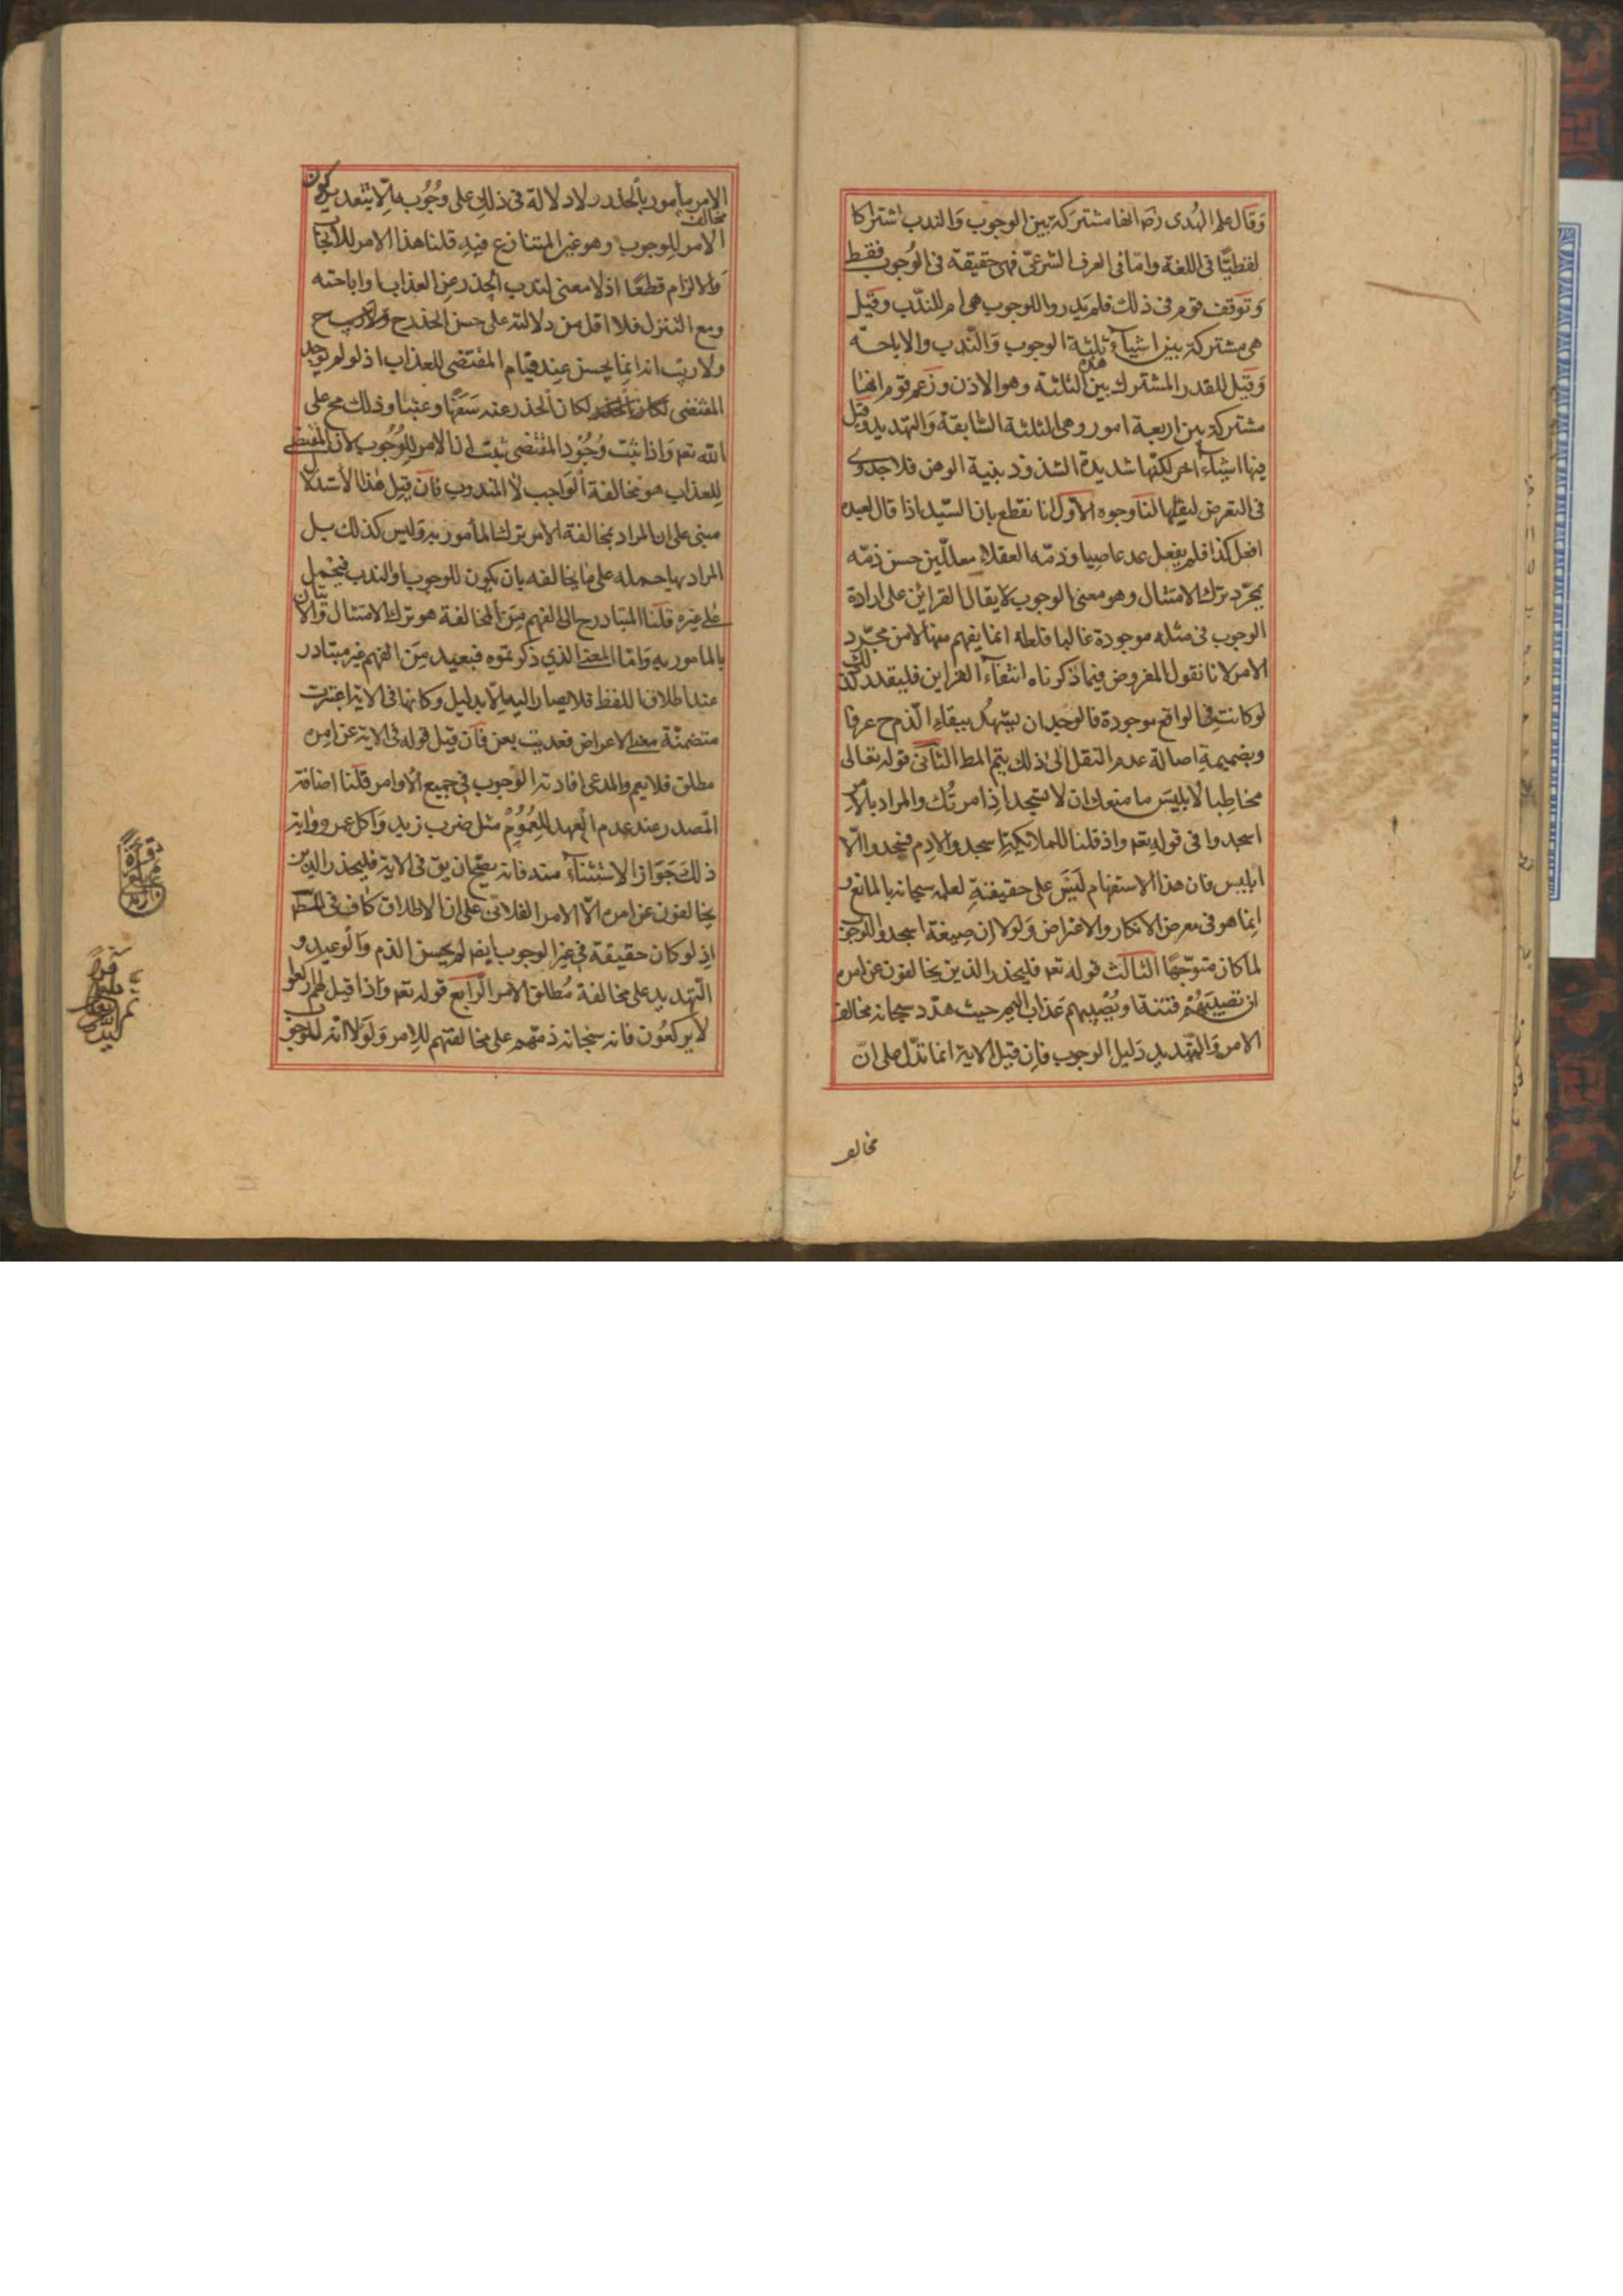 وقال علم الهدى رضه انها مشتركة بين الوجوب والندب اشتراكا
لفظيّا فى اللغة وامّا فى العرف الشرعىّ فهى حقيقة فى الوجوب فقط
وتوقف قوم فى ذلك فلم يدروا للوجوب هى ام للندب وقيل
هى مشتركة بين اشياء ثلثة الوجوب والندب والاباحة
وقيل للقدر المشترك بين هذه الثلثة وهو الاذن وزعم قوم انها
مشتركة بين اربعة امور وهى الثلثة السّابقة والتهديد وقيل
فيها اشياء اخر لكنّها شديدة الشذوذ بنية الوهن فلا جدوى
فى التعرض لنقلها لنا وجوه الاول انا نقطع بان السّيد اذا قال لعبده
افعل كذا فلم يفعل عد عاصيا وذمّه العقلاء معلّلين حسن ذمّه
بمجرّد ترك الامتثال وهو معنى الوجوب لا يقال القرائن على ارادة
الوجوب فى مثله موجودة غالبا فلعله انما يفهم منها لا من مجرّد
الامر لانا نقول المفروض فيما ذكرناه انتفاء القراين فليقدر كذلك
لو كانت فى الواقع موجودة فالوجدان يشهد ببقاء الذم ح عرفا
وبضميمة اصالة عدم النقل الى ذلك يتم المط الثانى قوله تعالى
مخاطبا لابليس ما منعك ان لا تسجد اذ امرتك والمراد بالامر
اسجدوا فى قوله تعه واذ قلنا للملائكة اسجدوا لادم فسجدوا الّا
ابليس فان هذا الاستفهام ليس على حقيقته لعلمه سبحانه بالمانع و
انما هو فى معرض الانكار والاعتراض ولولا ان صيغة اسجدوا للوجوب
لما كان متوجّها الثالث قوله تعه فليحذر الذين يخالفون عن امره
ان تصيبهم فتنة او يصيبهم عذاب اليم حيث هدّد سبحانه مخالف
الامر والتهديد دليل الوجوب فان قيل الاية انما تدلّ على انّ
مخالف
مخالف
الامر مأمور بالحذر ولا دلالة فى ذلك على وجوبه الّا بتقدير كون
الامر للوجوب وهو غير المتنازع فيه قلنا هذا الامر للايجاب
والالزام قطعًا اذ لا معنى لندب الحذر عن العذاب او اباحته
ومع التنزل فلا اقل من دلالته على حسن الحذر ح
ولا ريب انه انما يحسن عند قيام المقتضى للعذاب اذ لو لم يوجد
المقتضى لكان الحذر عنه سفهًا وعبثا وذلك مح على
الله تعه واذا ثبت وجود المقتضى ثبت ان الامر للوجوب لان المقتضى
للعذاب هو مخالفة الواجب لا المندوب فان قيل هذا الاستدلال
مبنى على ان المراد بمخالفة الامر ترك المأمور به وليس كذلك بل
المراد بها حمله على ما يخالفه بان يكون للوجوب او الندب فيحمل
على غيره قلنا المتبادر ح الى الفهم من المخالفة هو ترك الامتثال والاتيان
بالمامور به وامّا المعنى الذى ذكرتموه فبعيد من الفهم غير متبادر
عند اطلاق اللفظ فلا يصار اليه الّا بدليل وكانها فى الاية اعتبرت
متضمنّة معنى الاعراض فعديت بعن فان قيل قوله فى الاية عن امره
مطلق فلا يعم والمدعى افادته الوجوب فى جميع الاوامر قلنا اضافة
المصدر عند عدم العهد للعموم مثل ضرب زيد واكل عمرو واية
ذلك جواز الاستثناء منه فانه يصحّ ان يق فى الاية فليحذر الذين
يخالفون عن امره الّا الامر الفلانى على ان الاطلاق كاف فى المط
اذ لو كان حقيقة فى غير الوجوب ايضه لم يحسن الذم والوعيد و
التهديد على مخالفة مطلق الامر الرابع قوله تعه واذا قيل لهم اركعوا
لا يركعون فانه سبحانه ذمّهم على مخالفتهم للامر ولولا انه للوجوب